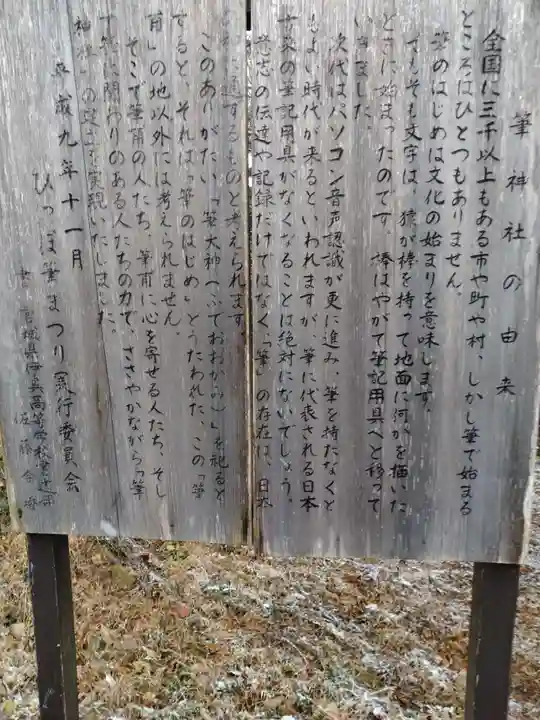 筆神社の由来
全国に三千以上もある市や町や村、しかし筆で始まる
ところはひとつもありません。
筆のはじめは文化の始まりを意味します。
そもそも文字は、猿が棒を持って地面に何かを描いた
ことに始まったのです。棒はやがて筆記用具へと移って
いきました。
次代はパソコン音声認識が更に進み、筆を持たなくと
もよい時代が来るといわれますが、筆に代表される日本
古来の筆記用具がなくなることは絶対にないでしょう。
意志の伝達や記録だけではなく「筆」の存在は、日本
に通ずるものと考えられます。
このありがたい「筆大神(ふでおおかみ)」を祀ると
すると、それは「筆のはじめ」とうたわれた、この「筆
甫」の地以外には考えられません。
そこで筆甫の人たち、筆甫に心を寄せる人たち、そし
て筆に関わりのある人たちの力で、ささやかながら「筆
神社」の建立を実現いたしました。
平成九年十一月
ひっぽ筆まつり実行委員会
宮城県 高等学校書道部
佐藤